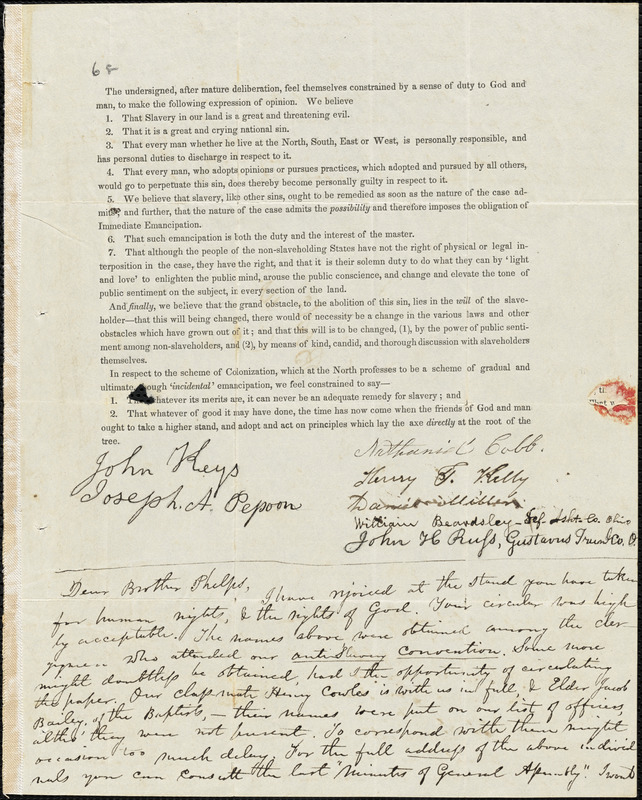 68
The undersigned, after mature deliberation, feel themselves constrained by a sense of duty to God and
man, to make the following expression of opinion. We believe
1. That Slavery in our land is a great and threatening evil.
2. That it is a great and crying national sin.
3. That every man whether he live at the North, South, East or West, is personally responsible, and
has personal duties to discharge in respect to it.
4. That every man, who adopts opinions or pursues practices, which adopted and pursued by all others,
would go to perpetuate this sin, does thereby become personally guilty in respect to it.
5. We believe that slavery, like other sins, ought to be remedied as soon as the nature of the case ad-
mits and further, that the nature of the case admits the possibility and therefore imposes the obligation of
Immediate Emancipation.
6. That such emancipation is both the duty and the interest of the master.
7. That although the people of the non-slaveholding States have not the right of physical or legal in-
terposition in the case, they have the right, and that it is their solemn duty to do what they can by 'light
and love' to enlighten the public mind, arouse the public conscience, and change and elevate the tone of
public sentiment on the subject, in every section of the land.
And finally, we believe that the grand obstacle, to the abolition of this sin, lies in the will of the slave-
holder—that this will being changed, there would of necessity be a change in the various laws and other
obstacles which have grown out of it; and that this will is to be changed, (1), by the power of public senti-
ment among non-slaveholders, and (2), by means of kind, candid, and thorough discussion with slaveholders
themselves.
In respect to the scheme of Colonization, which at the North professes to be a scheme of gradual and
ultimate, though 'incidental' emancipation, we feel constrained to say—
1. That whatever its merits are, it can never be an adequate remedy for slavery; and
2. That whatever of good it may have done, the time has now come when the friends of God and man
ought to take a higher stand, and adopt and act on principles which lay the axe directly at the root of the
tree.
John Keys
Joseph. A. Pepoon
Nathaniel Cobb.
Henry T. Kelly
Daniel Miller
William Beardsley - Jef. Asht. Co. Ohio
John H Russ, Gustavus Trum. Co. O
Dear Brother Phelps,
I have rejoiced at the stand you have taken
for human rights, & the rights of God. Your circular was high
ly acceptable. The names above were obtained among the cler
gymen who attended our anti Slavery Convention. Some more
might doubtless be obtained, had I the opportunity of circulating
the paper. Our classmate Henry Cowles is with us in full, & Elder Jacob
Bailey, of the Baptists, — their names were put on our list of officers,
altho' they were not present. To correspond with them might
occasion too much delay. For the full address of the above individ
uals you can consult the last "Minutes of General Assembly". I want